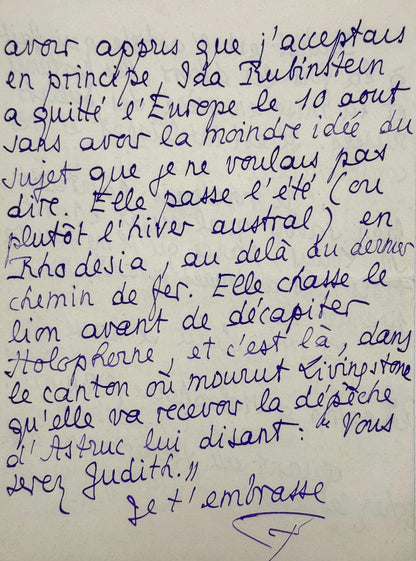 avoir appris que j'acceptais
en principe, Ida Rubinstein
a quitté l'Europe le 10 aout
sans avoir la moindre idée du
sujet que je ne voulais pas
dire. Elle passe l'été (ou
plutôt l'hiver austral) en
Rhodesia, au delà du dernier
chemin de fer. Elle chasse le
lion avant de décapiter
Holopherne, et c'est là, dans
le canton où mourut Livingstone
qu'elle va recevoir la dépêche
d'Astruc lui disant: "Vous
serez Judith."
Je t'embrasse